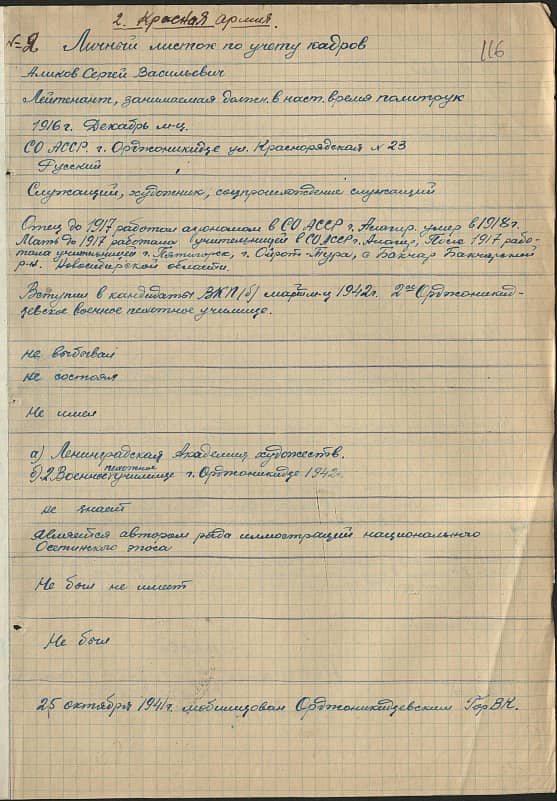 2. Красная армия.
№ 2 Личный листок по учету кадров
116
Аликов Сергей Васильевич
Лейтенант, занимаемая должн. в наст. время политрук
1916 г. Декабрь м-ц.
СО АССР. г. Орджоникидзе ул. Краснорядская № 23
Русский
Служащий, художник, соцпроисхождение служащий
Отец до 1917 работал агрономом в СО АССР г. Алагир. умер в 1918 г.
Мать до 1917 работала учительницей в СО АССР г. Алагир, После 1917 рабо-
тала учительницей г. Пятигорск, г. Ойрот-Тура, с Бакчар Бакчарский
р-н. Новосибирской области.
Вступил в кандидаты ВКП(б) март м-ц 1942 г. 2ое Орджоникид-
зевское военное пехотное училище.
не выбывал
не состоял
Не имел
а) Ленинградская Академия художеств.
б) 2 Военное пехотное училище г. Орджоникидзе 1942 г.
не знает
является автором ряда иллюстраций национального
Осетинского эпоса
Не был не имеет
Не был
25 октября 1941 г. мобилизован Орджоникидзевским ГорВК.